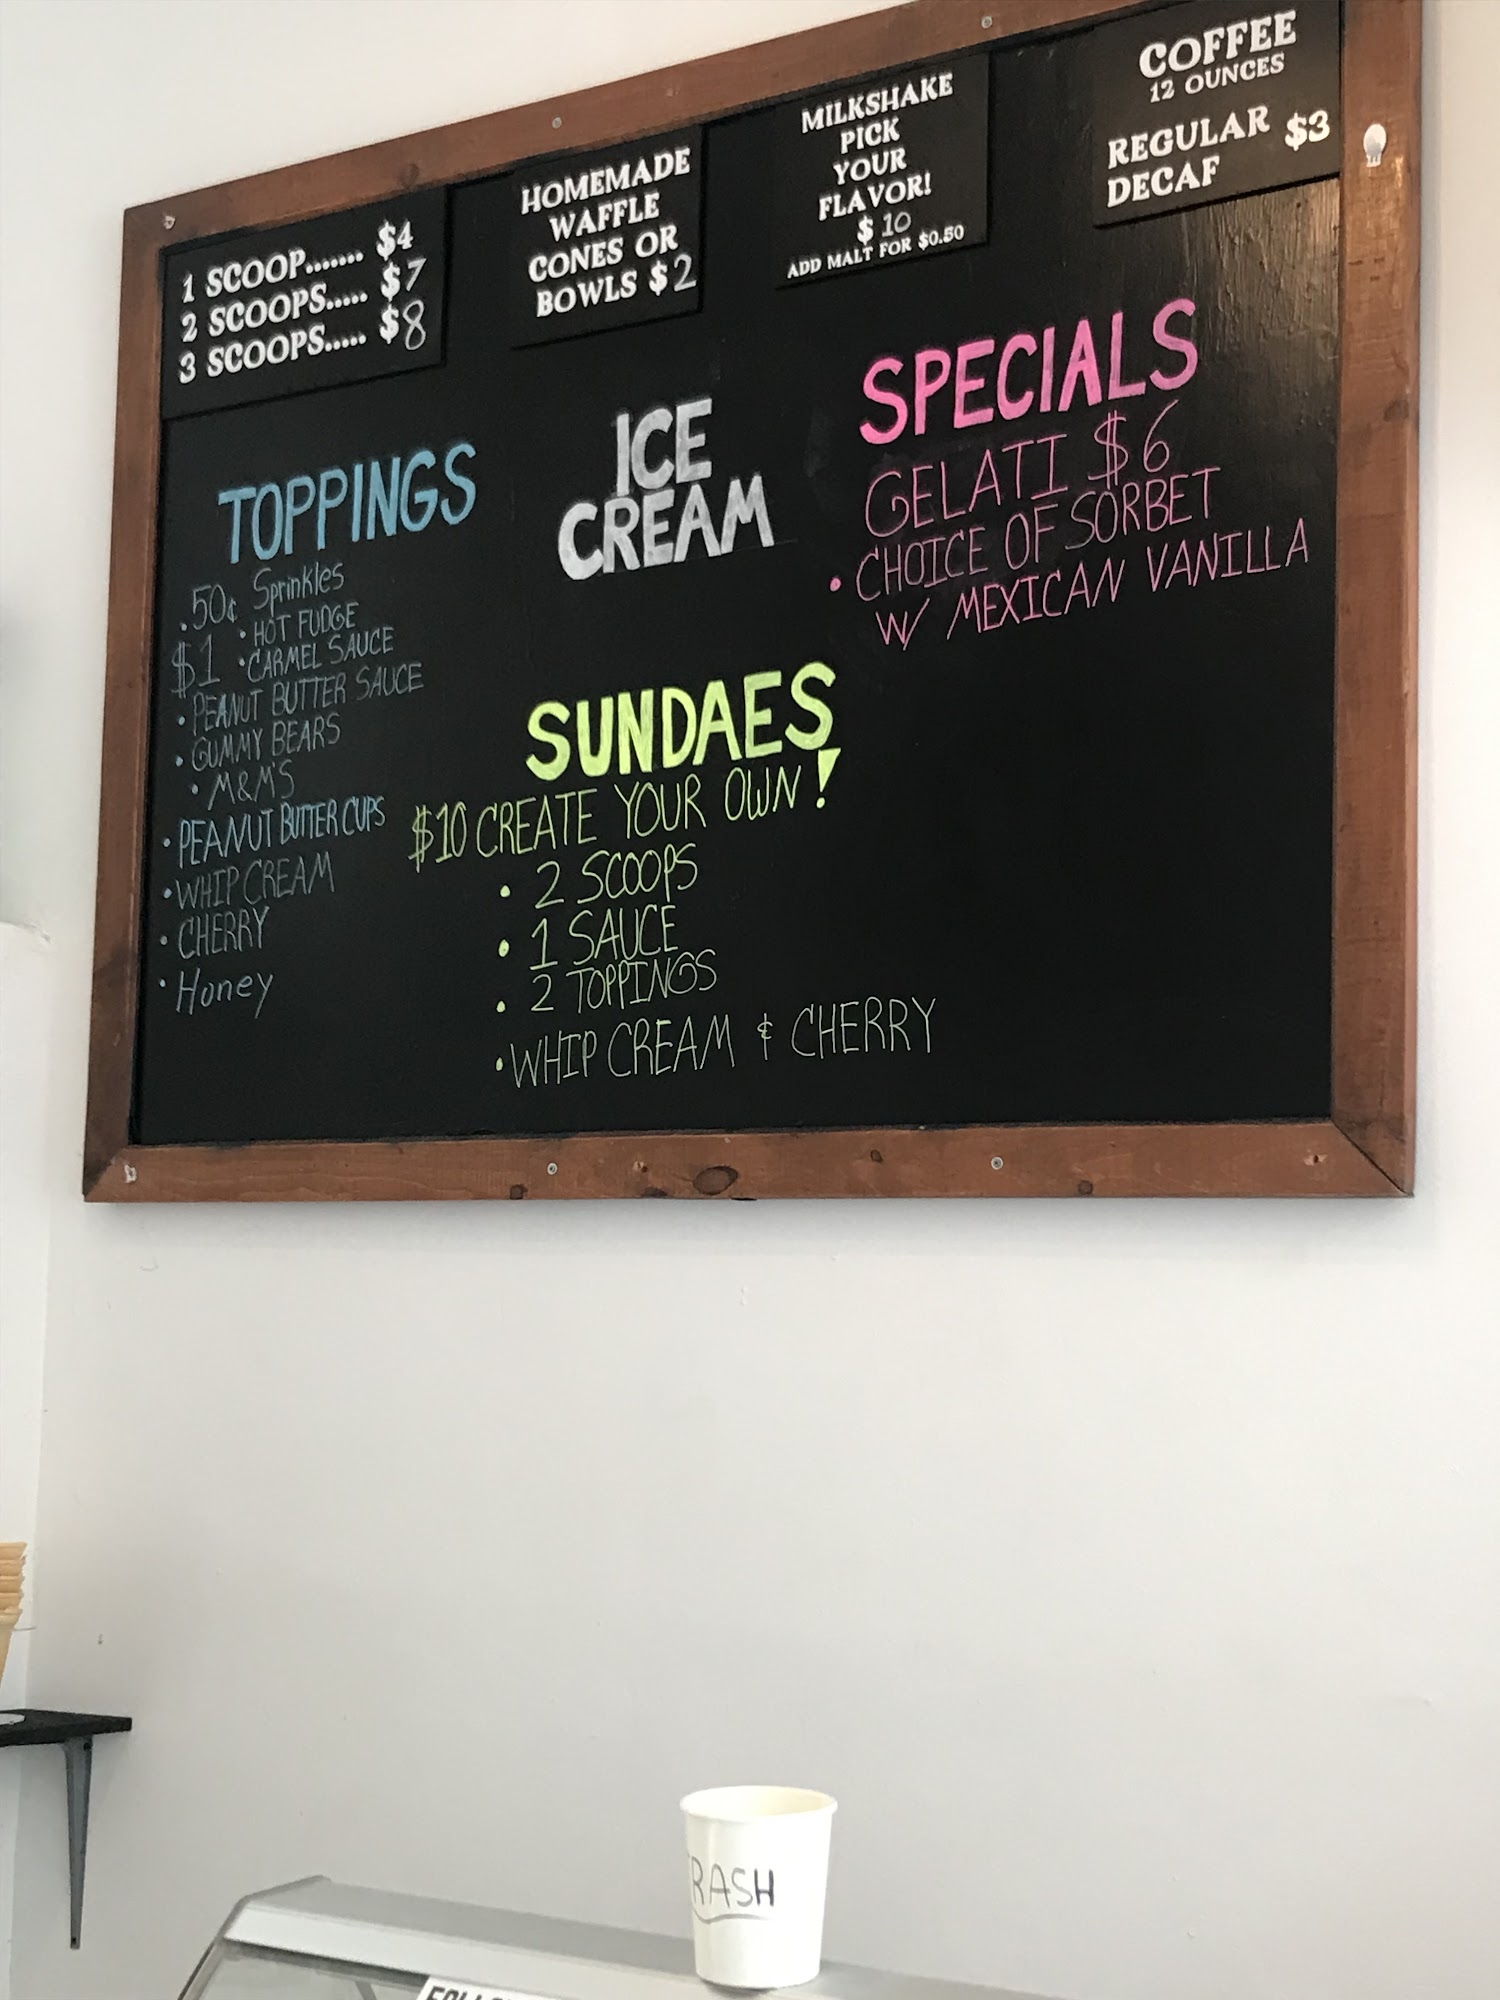 1 SCOOP....... $4
2 SCOOPS..... $7
3 SCOOPS..... $8
HOMEMADE
WAFFLE
CONES OR
BOWLS $2
MILKSHAKE
PICK
YOUR
FLAVOR!
$ 10
ADD MALT FOR $0.50
COFFEE
12 OUNCES
REGULAR $3
DECAF
TOPPINGS
.50¢ Sprinkles
• HOT FUDGE
$1 • CARMEL SAUCE
• PEANUT BUTTER SAUCE
• GUMMY BEARS
• M&M'S
• PEANUT BUTTER CUPS
• WHIP CREAM
• CHERRY
• Honey
ICE
CREAM
SUNDAES
$10 CREATE YOUR OWN!
• 2 SCOOPS
• 1 SAUCE
• 2 TOPPINGS
• WHIP CREAM & CHERRY
SPECIALS
GELATI $6
• CHOICE OF SORBET
W/ MEXICAN VANILLA
TRASH